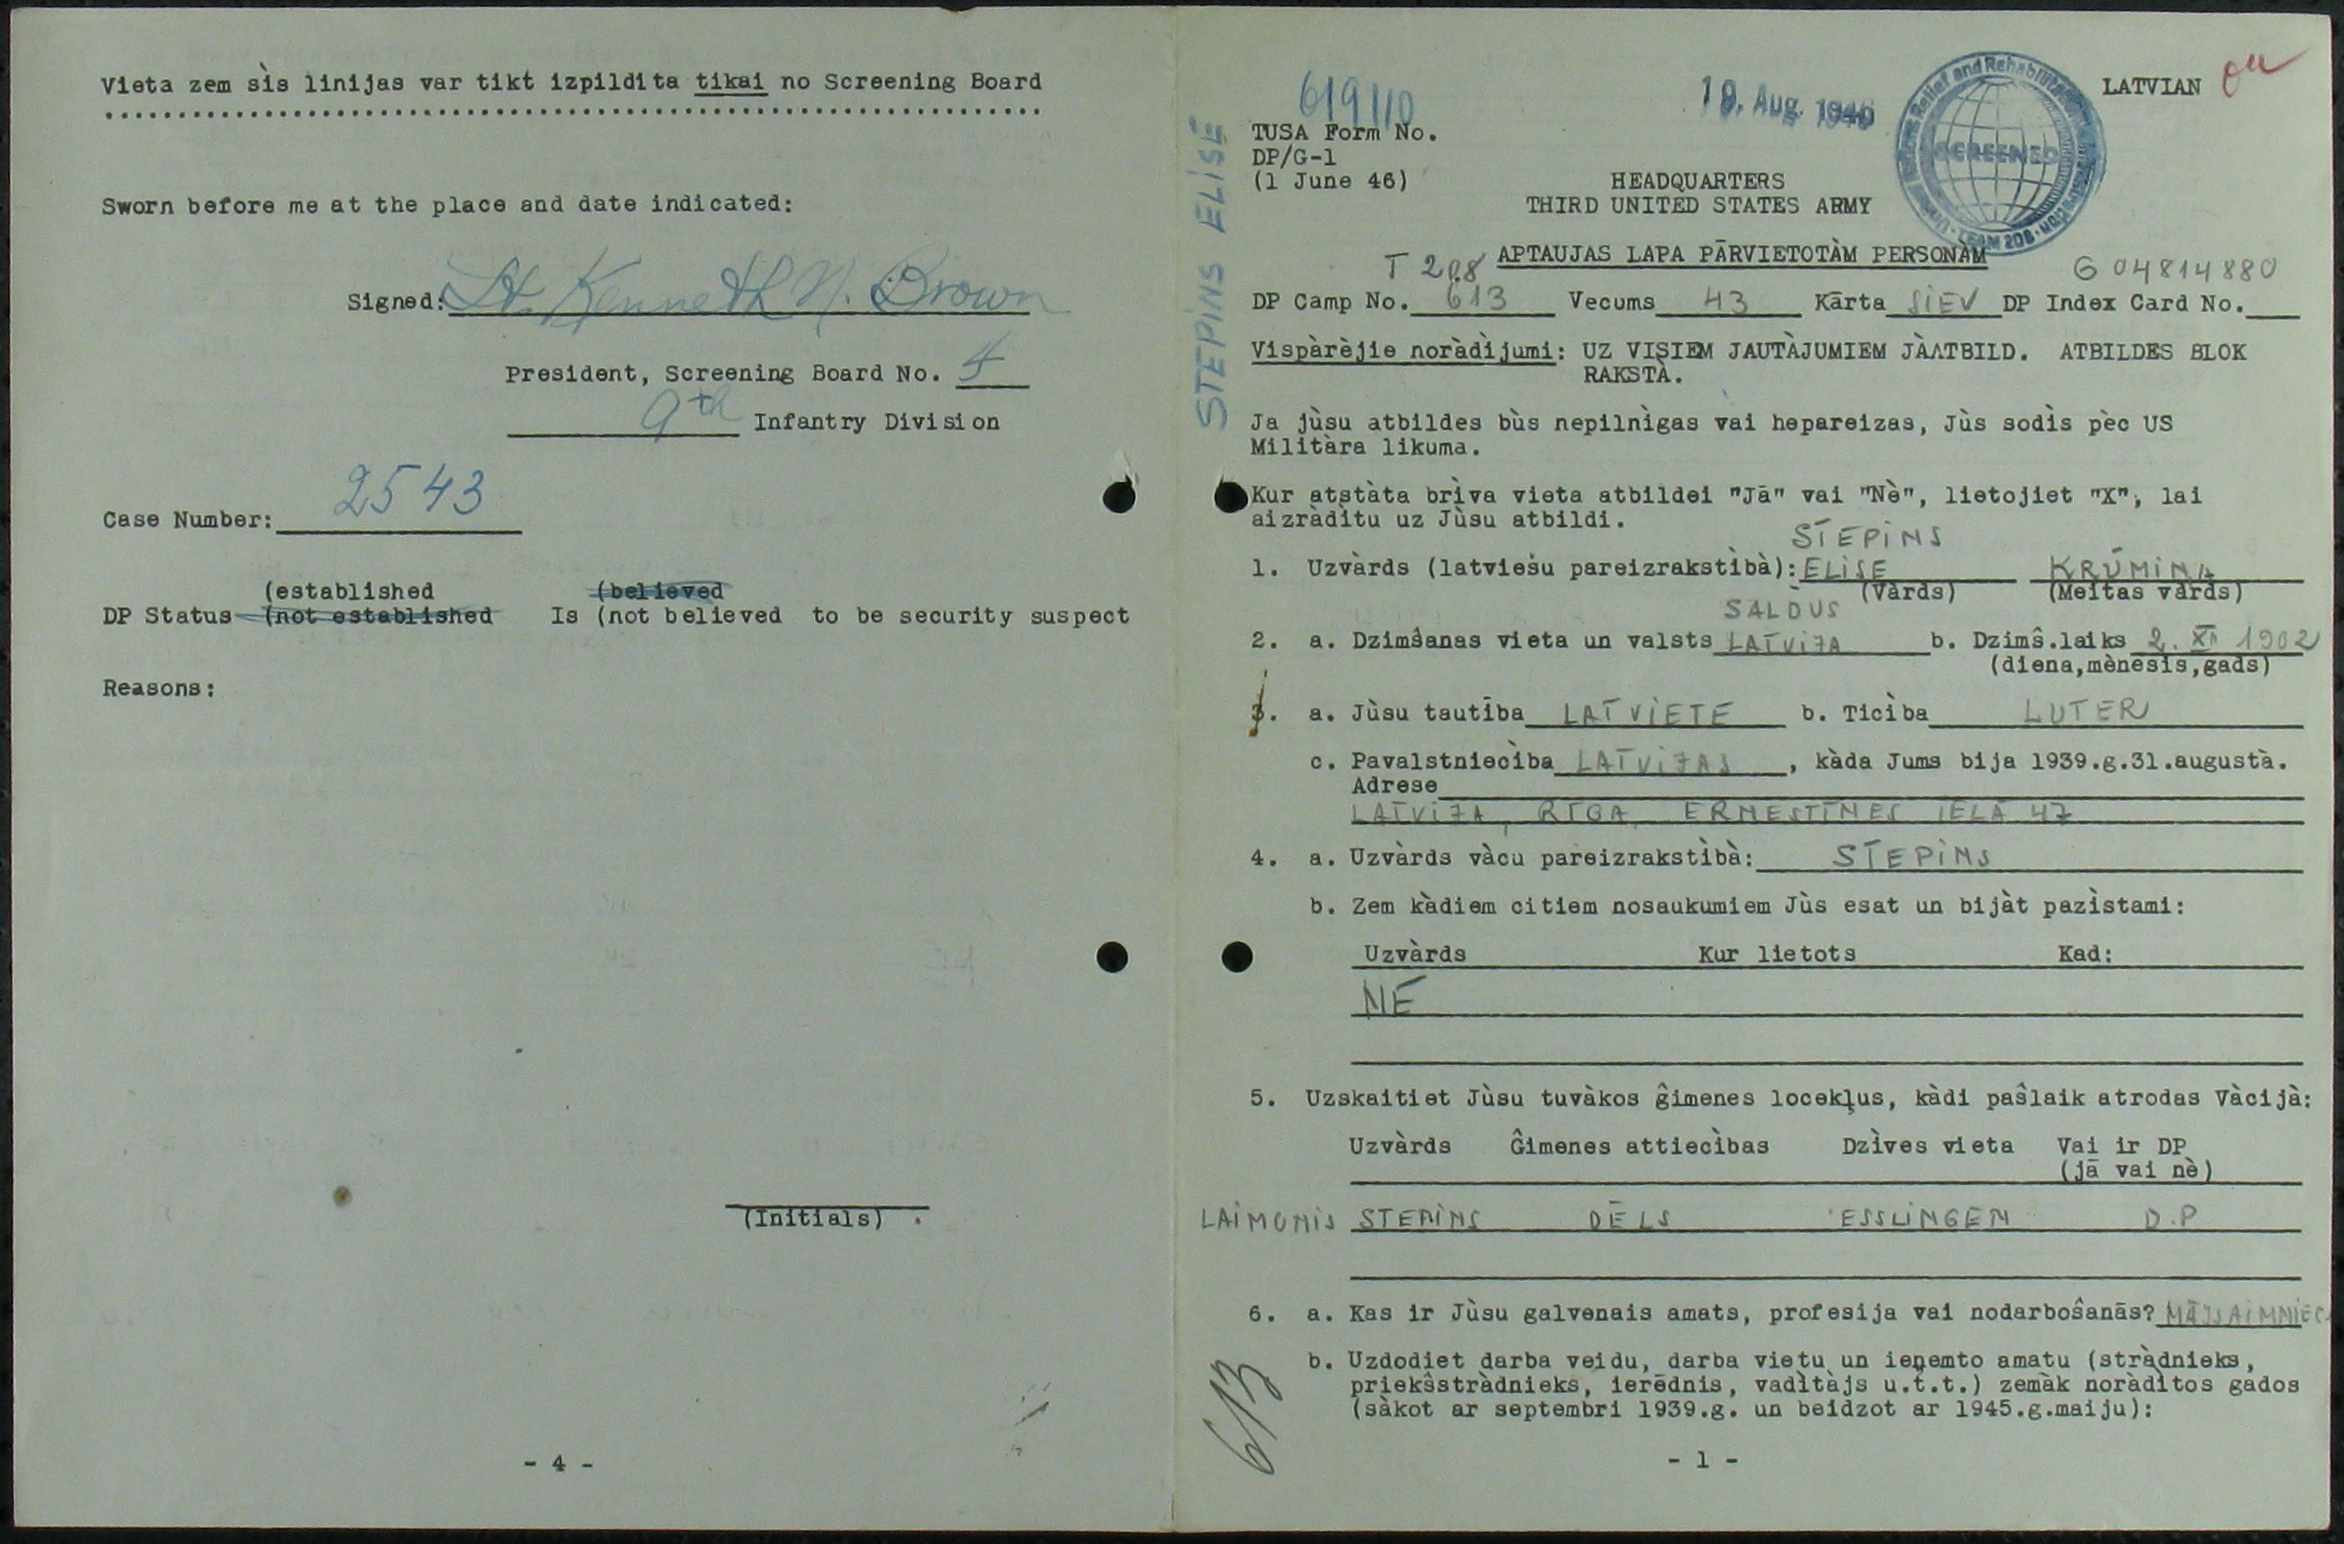 Vieta zem sìs linijas var tikt izpildita tikai no Screening Board
Sworn before me at the place and date indicated:
Signed: Lt. Kenneth N. Brown
President, Screening Board No. 4
9th Infantry Division
Case Number: 2543
(established (believed
DP Status (not established Is (not believed to be security suspect
Reasons:
(Initials) .
- 4 -
STEPINS ELISE
619110
19. Aug. 1946
LATVIAN
SCREENED
TEAM 208
TUSA Form No.
DP/G-1
(1 June 46)
HEADQUARTERS
THIRD UNITED STATES ARMY
APTAUJAS LAPA PĀRVIETOTÀM PERSONÀM
T 208
G 04814880
DP Camp No. 613 Vecums 43 Kārta SIEV DP Index Card No.
Vispàrèjie noràdìjumi: UZ VISIEM JAUTÀJUMIEM JÀATBILD. ATBILDES BLOK
RAKSTÀ.
Ja jùsu atbildes bùs nepilnìgas vai hepareizas, Jùs sodìs pèc US
Militàra likuma.
Kur atstàta brìva vieta atbildei "Jā" vai "Nè", lietojiet "X", lai
aizràdìtu uz Jùsu atbildi.
STEPINS
1. Uzvàrds (latviešu pareizrakstìbà): ELISE KRŪMIŅA
(Vàrds) (Meitas vàrds)
SALDUS
2. a. Dzimŝanas vieta un valsts LATVIJA b. Dzimŝ.laiks 2. XI 1902
(diena,mènesis,gads)
3. a. Jùsu tautība LATVIETE b. Ticìba LUTER
c. Pavalstniecìba LATVIJAS , kàda Jums bija 1939.g.31.augustà.
Adrese
LATVIJA, RĪGA, ERNESTĪNES IELĀ 47
4. a. Uzvàrds vàcu pareizrakstìbà: STEPINS
b. Zem kàdiem citiem nosaukumiem Jùs esat un bijàt pazìstami:
Uzvàrds Kur lietots Kad:
NĒ
5. Uzskaitiet Jùsu tuvàkos ĝimenes locekļus, kàdi paŝlaik atrodas Vàcijà:
Uzvàrds Ĝimenes attiecìbas Dzìves vieta Vai ir DP
(jā vai nè)
LAIMONIS STEPINS DĒLS ESSLINGEN D.P
6. a. Kas ir Jùsu galvenais amats, profesija vai nodarboŝanās? MĀJSAIMNIEC
b. Uzdodiet darba veidu, darba vietu un ieņemto amatu (stràdnieks,
priekŝstràdnieks, ierēdnis, vadìtàjs u.t.t.) zemàk noràdìtos gados
(sàkot ar septembri 1939.g. un beidzot ar 1945.g.maiju):
613
- 1 -